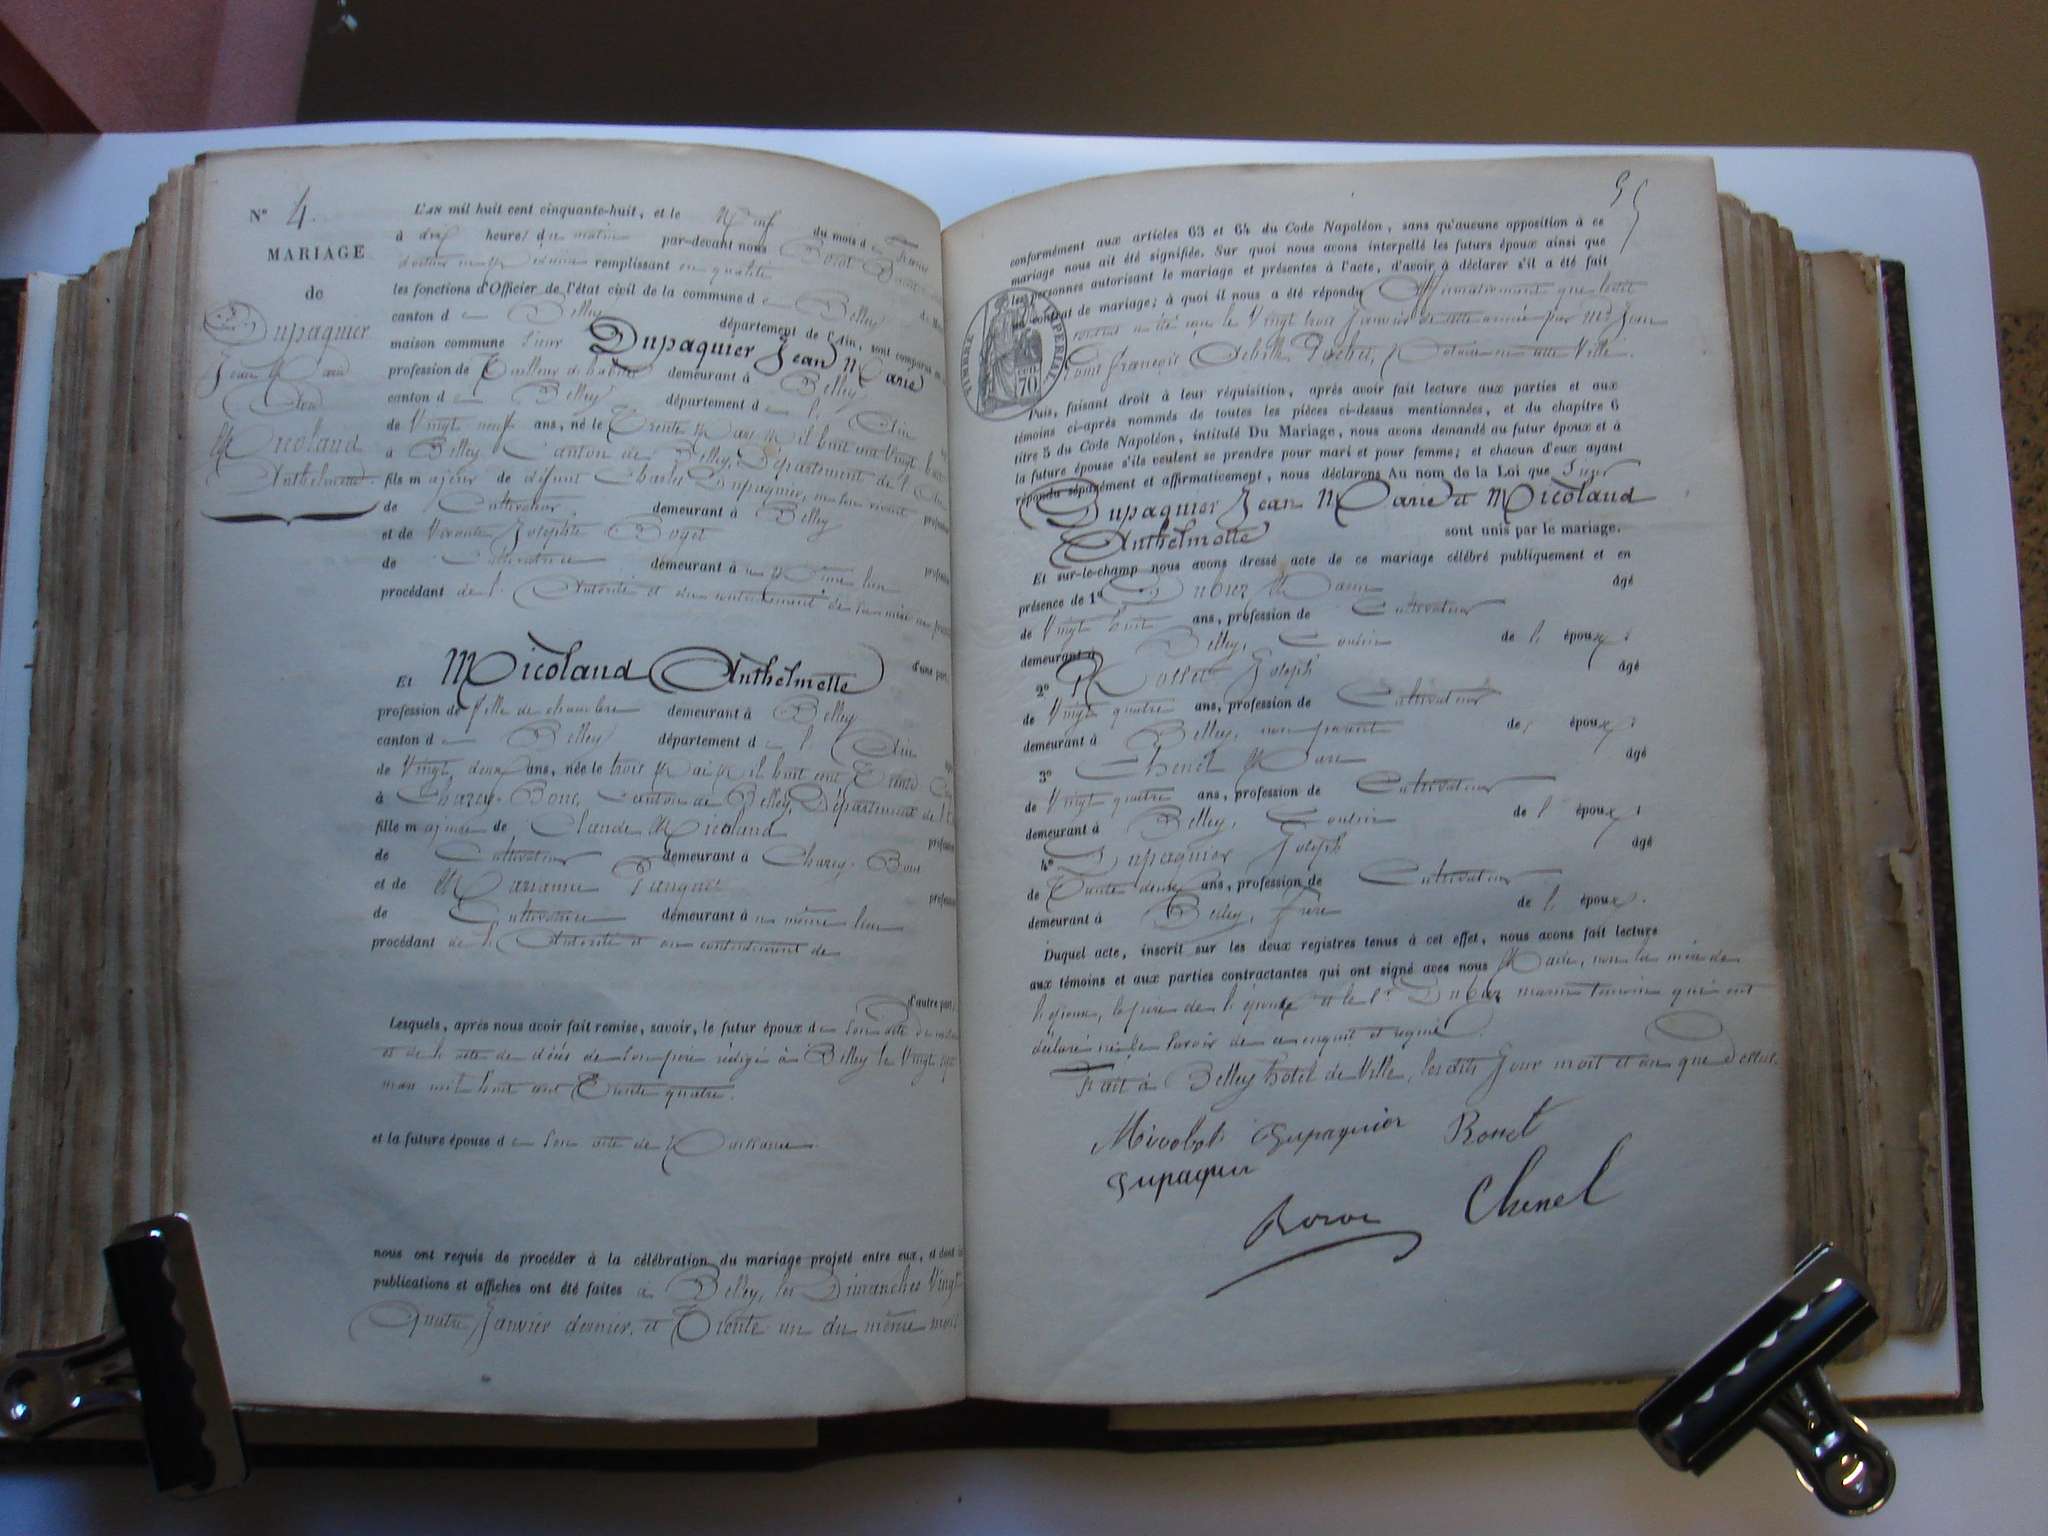 N° 4.
MARIAGE
de
Dupaquier
Jean Marie
Micoland
Anthelmette.
L'AN mil huit cent cinquante-huit, et le neuf du mois de
à dix heures du matin par-devant nous
remplissant en qualité
les fonctions d'Officier de l'état civil de la commune de Belley
canton de Belley département de l'Ain, sont comparus en
maison commune Sieur Dupaquier Jean Marie
profession de Tailleur d'habits demeurant à Belley
canton de Belley département de l'Ain
de Vingt neuf ans, né le Trente Mars Mil huit cent vingt huit
à Belley Canton de Belley, Département de l'Ain
fils majeur de défunt Charles Dupaquier, en son vivant profession
de Cultivateur, demeurant à Belley
et de vivante Josephte Boget profession
de Cultivatrice demeurant au Même lieu
procédant de l'Autorité et du consentement de sa mère
d'une part,
Et Micoland Anthelmette
profession de fille de chambre demeurant à Belley
canton de Belley département de l'Ain
de Vingt deux ans, née le trois Mai Mil huit cent Trente Cinq
à Charey-Bons, Canton de Belley, Département de l'Ain
fille majeure de Claude Micoland profession
de Cultivateur demeurant à Charey-Bons
et de Marianne profession
de Cultivatrice demeurant au même lieu
procédant de l'Autorité et du consentement de
d'autre part,
Lesquels, après nous avoir fait remise, savoir, le futur époux de son acte de naissance
et de l'acte de décès de son père rédigé à Belley le Vingt sept
mars mil huit cent Trente quatre.
et la future épouse de son acte de Naissance.
nous ont requis de procéder à la célébration du mariage projeté entre eux, et dont les
publications et affiches ont été faites à Belley, les Dimanches Vingt
Quatre Janvier dernier, et Trente un du même mois
95
conformément aux articles 63 et 64 du Code Napoléon, sans qu'aucune opposition à ce
mariage nous ait été signifiée. Sur quoi nous avons interpellé les futurs époux ainsi que
les personnes autorisant le mariage et présentes à l'acte, d'avoir à déclarer s'il a été fait
un contrat de mariage; à quoi il nous a été répondu Affirmativement que ledit
contrat a été reçu le Vingt trois Janvier de cette année par Me Jean
Louis François Notaire en cette Ville.
TIMBRE IMPERIAL
70
Puis, faisant droit à leur réquisition, après avoir fait lecture aux parties et aux
témoins ci-après nommés de toutes les pièces ci-dessus mentionnées, et du chapitre 6
titre 5 du Code Napoléon, intitulé Du Mariage, nous avons demandé au futur époux et à
la future épouse s'ils veulent se prendre pour mari et pour femme; et chacun d'eux ayant
répondu séparément et affirmativement, nous déclarons Au nom de la Loi que
Dupaquier Jean Marie et Micoland
Anthelmette sont unis par le mariage.
Et sur-le-champ nous avons dressé acte de ce mariage célébré publiquement et en
présence de 1° Dubuz Marin âgé
de Vingt huit ans, profession de Cultivateur
demeurant à Belley, Cousin de l'époux;
2° Rosset Joseph âgé
de Vingt quatre ans, profession de Cultivateur
demeurant à Belley, non parent des époux;
3° Chenel Marc âgé
de Vingt quatre ans, profession de Cultivateur
demeurant à Belley, Cousin de l'époux;
4° Dupaquier Joseph âgé
de Trente deux ans, profession de Cultivateur
demeurant à Belley, frère de l'époux.
Duquel acte, inscrit sur les deux registres tenus à cet effet, nous avons fait lecture
aux témoins et aux parties contractantes qui ont signé avec nous Maire, non la mère de
l'époux, le père de l'épouse et le Sr Dubuz marin témoin qui ont
déclaré ne le savoir de ce enquis et requis.
Fait à Belley hôtel de Ville, lesdits jour mois et an que Dessus.
Dupaquier
Dupaquier
Chenel